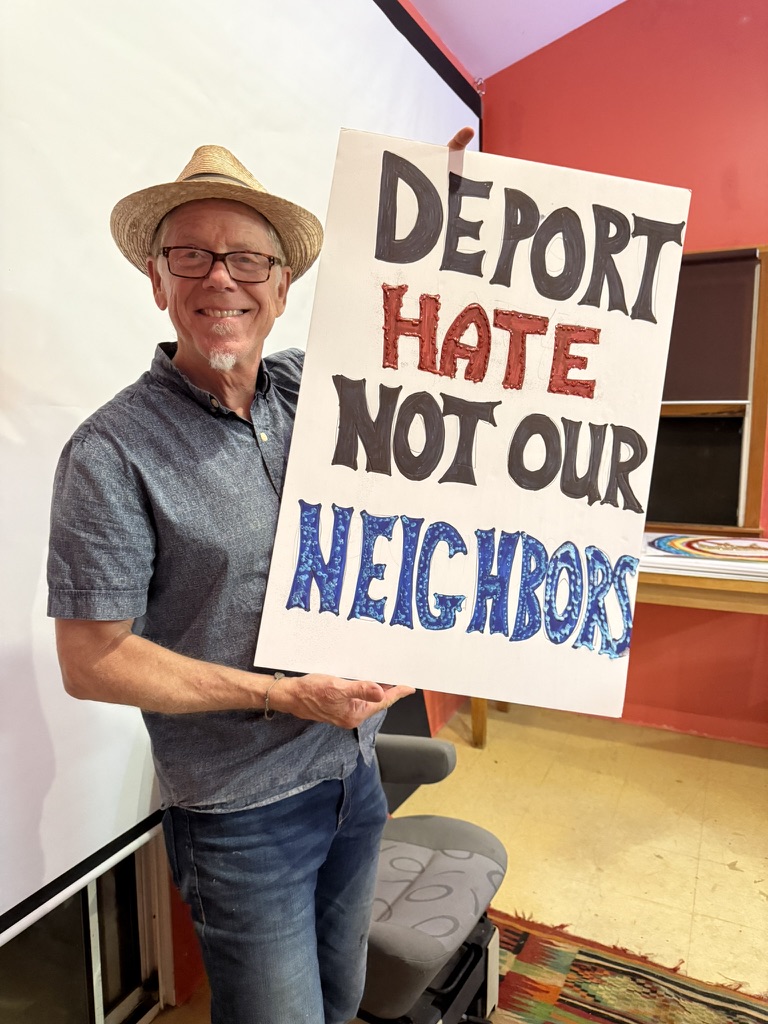 DEPORT
HATE
NOT OUR
NEIGHBORS